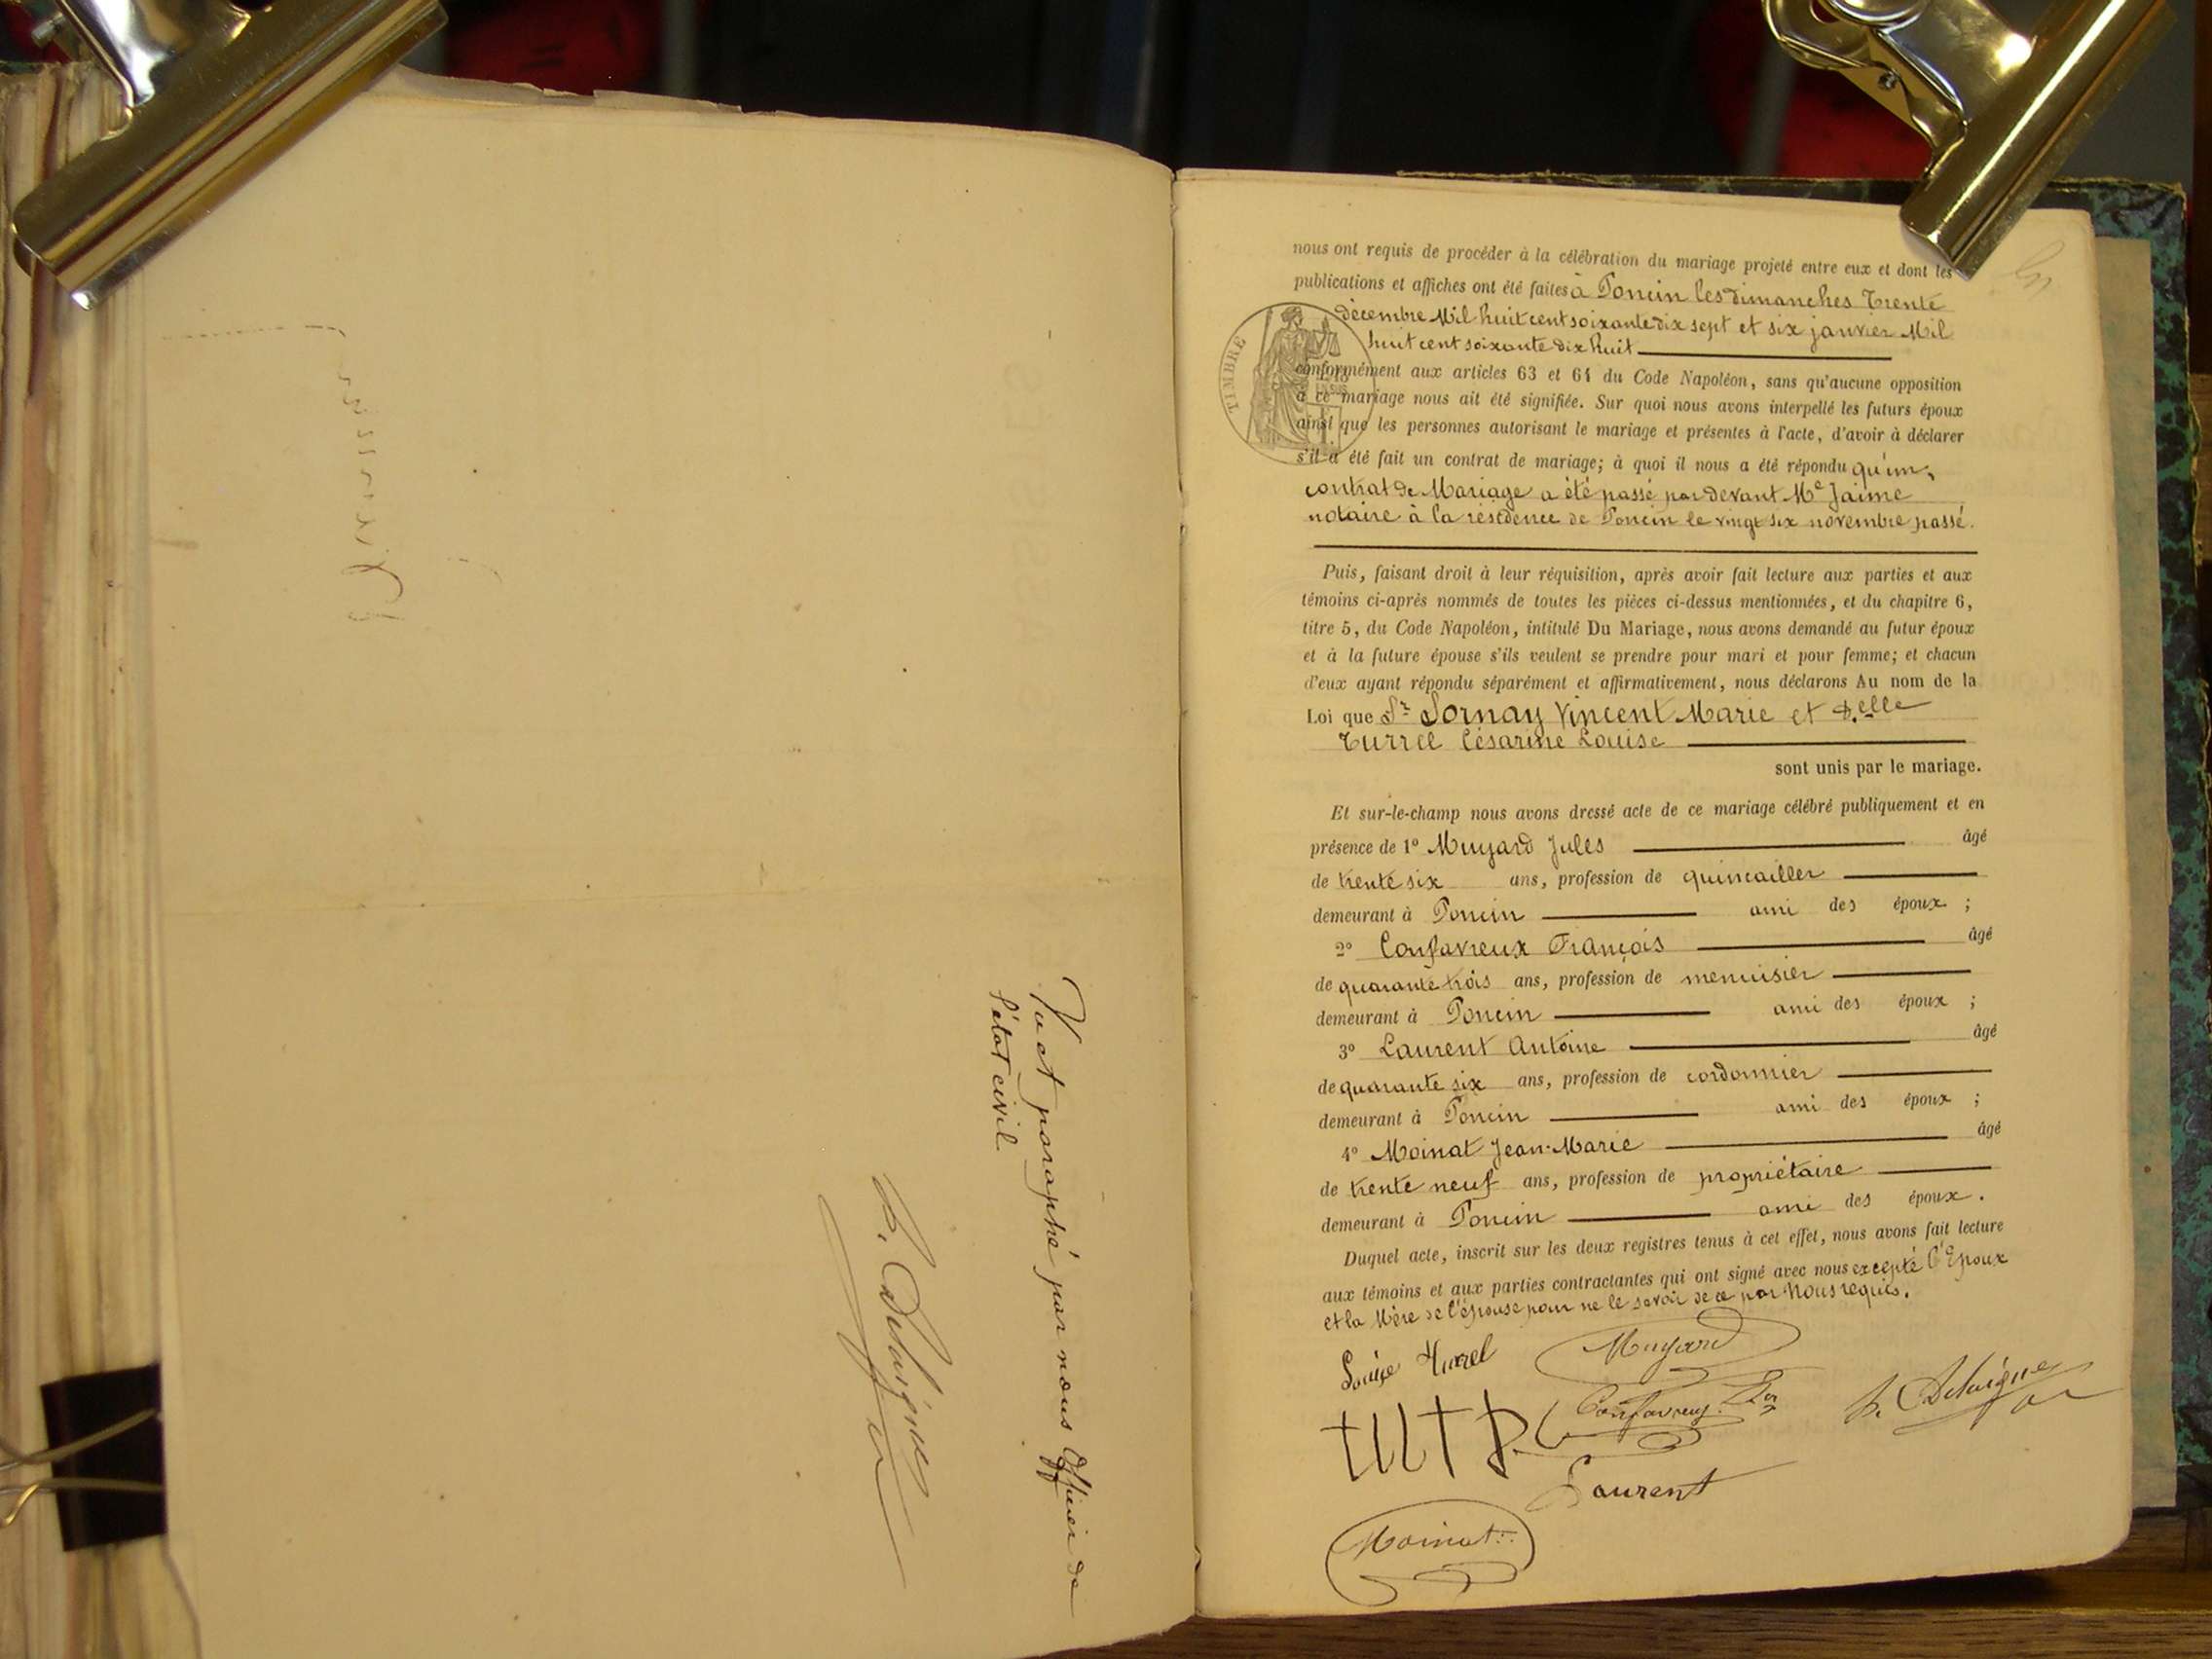 Vu et paraphé par nous Officier de
l'état civil
nous ont requis de procéder à la célébration du mariage projeté entre eux et dont les
publications et affiches ont été faites à Poncin les dimanches Trente
décembre Mil huit cent soixante dix sept et six janvier Mil
huit cent soixante dix huit
TIMBRE
conformément aux articles 63 et 64 du Code Napoléon, sans qu'aucune opposition
à ce mariage nous ait été signifiée. Sur quoi nous avons interpellé les futurs époux
ainsi que les personnes autorisant le mariage et présentes à l'acte, d'avoir à déclarer
s'il a été fait un contrat de mariage; à quoi il nous a été répondu qu'un
contrat de Mariage a été passé par devant Me Jaime
notaire à la résidence de Poncin le vingt six novembre passé.
Puis, faisant droit à leur réquisition, après avoir fait lecture aux parties et aux
témoins ci-après nommés de toutes les pièces ci-dessus mentionnées, et du chapitre 6,
titre 5, du Code Napoléon, intitulé Du Mariage, nous avons demandé au futur époux
et à la future épouse s'ils veulent se prendre pour mari et pour femme; et chacun
d'eux ayant répondu séparément et affirmativement, nous déclarons Au nom de la
Loi que Sr Sornay Vincent Marie et D.elle
Turrel Césarine Louise
sont unis par le mariage.
Et sur-le-champ nous avons dressé acte de ce mariage célébré publiquement et en
présence de 1º Muyard Jules âgé
de trente six ans, profession de quincailler
demeurant à Poncin ami des époux ;
2º Confavreux François âgé
de quarante trois ans, profession de menuisier
demeurant à Poncin ami des époux ;
3º Laurent Antoine âgé
de quarante six ans, profession de cordonnier
demeurant à Poncin ami des époux ;
4º Moinat Jean-Marie âgé
de trente neuf ans, profession de propriétaire
demeurant à Poncin ami des époux.
Duquel acte, inscrit sur les deux registres tenus à cet effet, nous avons fait lecture
aux témoins et aux parties contractantes qui ont signé avec nous excepté l'Epoux
et la Mère de l'épouse pour ne le savoir de ce par Nous requis.
Louise Turrel
Muyard
Confavreux
Laurent
Moinat